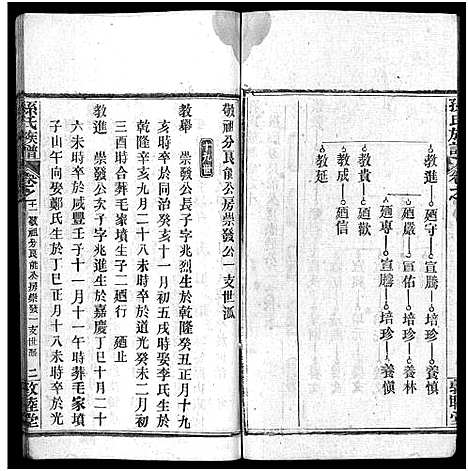 孫氏族譜
教進 廼守 宣騰 培珍 養慎
廼嚴 宣佑 培珍 養林
廼專 宣騰 培珍 養慎
教貴 廼歡
教成 廼信
教延
敬祖分良能公房崇發公一支世派
十九世
教舉 崇發公長子字兆烈生於乾隆癸丑正月十九
亥時於同治癸亥十一月初五戌時娶李氏生於
乾隆辛亥九月二十八未時於道光癸未二月初
三酉時合葬毛家墳生子二廼行 廼止
教進 崇發公次子字兆進生於嘉慶丁巳十月二十
六未時於咸豐壬子十一月十一午時葬毛家墳
子山午向娶鄭氏生於丁巳正月十八未時於光
孫氏族譜 卷之 敬祖分良能公房崇發一支世派 二 敦睦堂